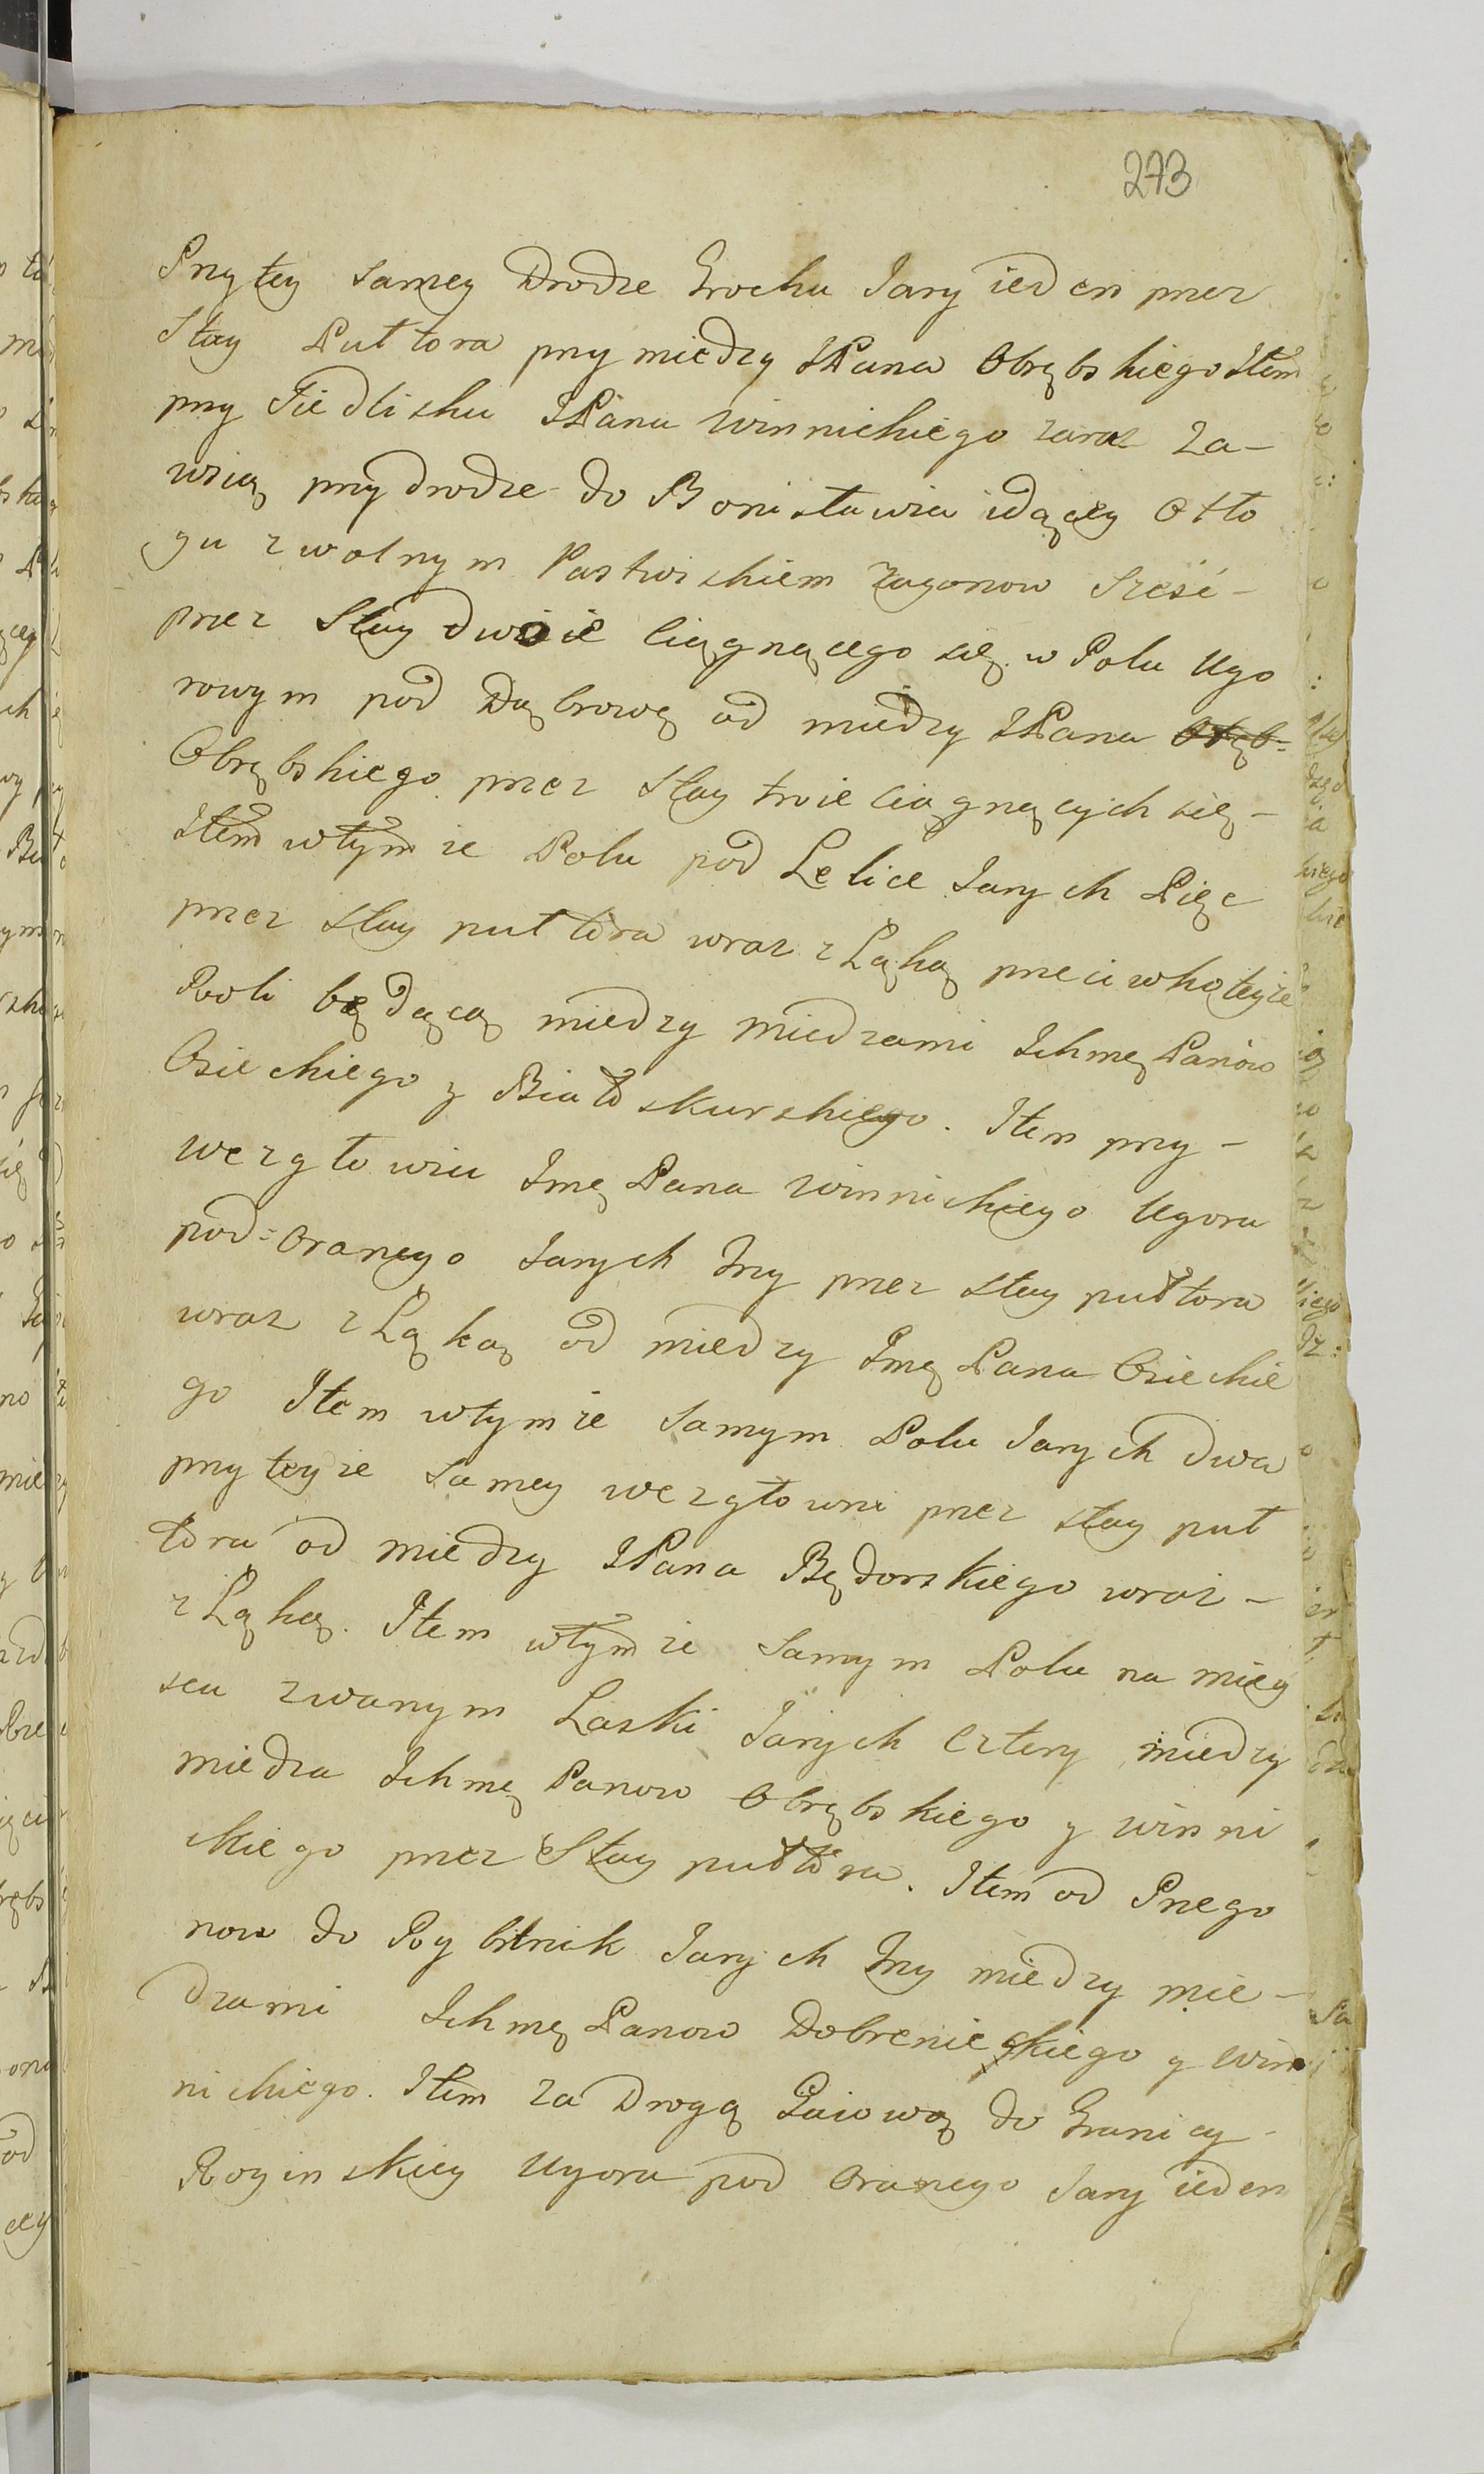 273
Przy tey samey Drodze Grochu Jary ieden przez
Stay Puttora przy miedzy JPana Obrębskiego Item
przy Siedlisku JPana Winnickiego zaraz Za-
wsią przy drodze do Bonisławia idącey Otło
gu z wolnym Pastwiskiem Zagonow Sześć -
przez Stay dwoie ciągnącego się w Polu Ugo
rowym pod Dąbrową od miedzy JPana Obręb-
Obrębskiego przez Stay troie ciągnących się -
Item w tymże Polu pod Lelice Jarych Pięc
przez stay puttora wraz z Łąką przeciwko teyże
Roli będącą miedzy Miedzami Ichmę Panow
Osieckiego y Białoskurskiego. Item przy -
Wezgłowiu Jmę Pana Winnickiego Ugoru
pod=oranego Jarych Trzy przez stay puttora
wraz z Łąką od miedzy Jmę Pana Osieckie
go Item w tymże Samym Polu Jarych dwa
przy teyże samey wezgłowni przez stay put
tora od miedzy JPana Będorskiego wraz -
z Łąką. Item w tymże Samym Polu na miey
scu zwanym Laski Jarych Cztery miedzy
miedza Ichmę Panow Obrębskiego y Winni
ckiego przez Stay puttora. Item od Przego
now do Rybitnik Jarych Trzy miedzy mie-
dzami Ichmę Panow Dobrenieckiego y Win
nickiego. Item za Drogą Gaiową do Granicy -
Roginskiey Ugoru pod oranego Jary ieden